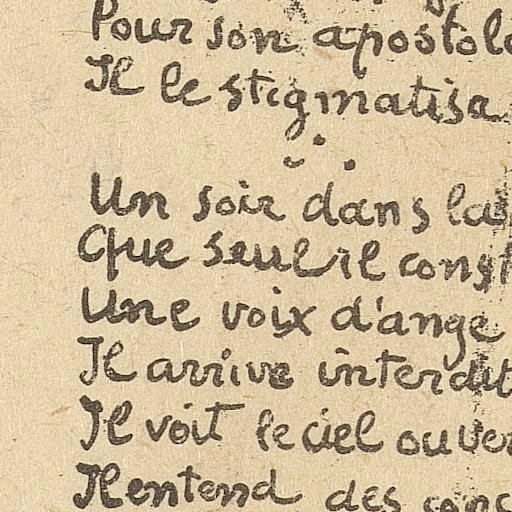 Pour son apostol
Il le stigmatisa
Un soir dans la
Que seul il const
Une voix d'ange
Il arrive interdit
Il voit le ciel ouver
Il entend des conc